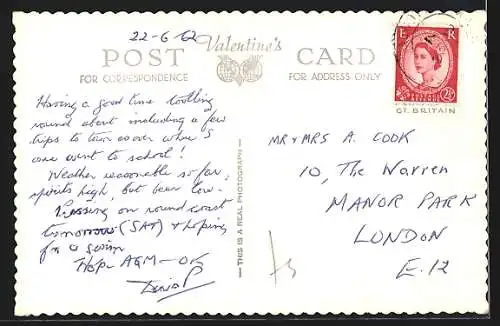 22-6-62
POST Valentine's CARD
FOR CORRESPONDENCE
FOR ADDRESS ONLY
E R
2½
GT. BRITAIN
Having a good time tootling
round about including a few
trips to Town where I
once went to school!
Weather reasonable so far,
spirits high, but beer low.
Pressing on round coast
tomorrow (SAT) & hoping
for a swim
Hope AGM - OK
THIS IS A REAL PHOTOGRAPH
MR & MRS A. COOK
10, The Warren
MANOR PARK
LONDON
E.12